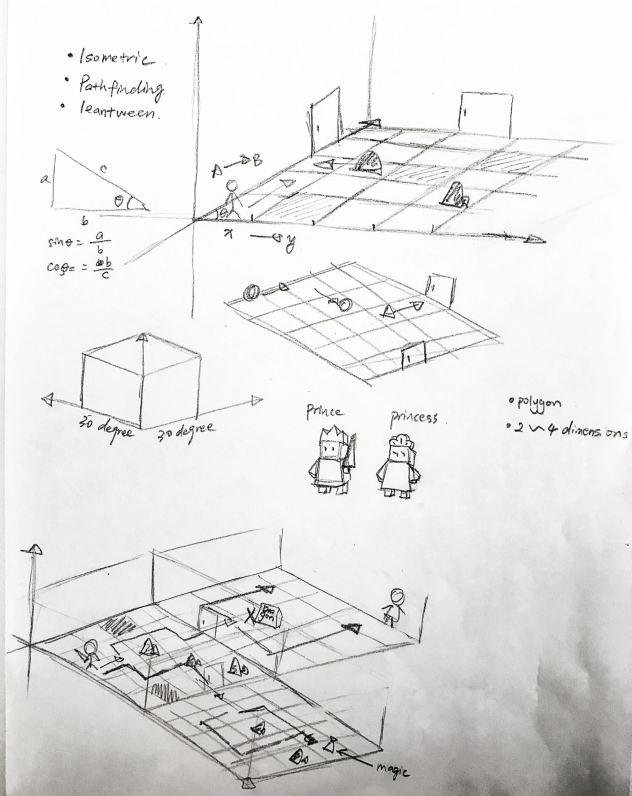 • Isometric
• Pathfinding
• leantween.
A → B
a
c
θ
b
sinθ = a/b
cosθ = b/c
θ
x → y
30 degree
30 degree
Prince
princess
• polygon
• 2~4 dimensions
X
magic